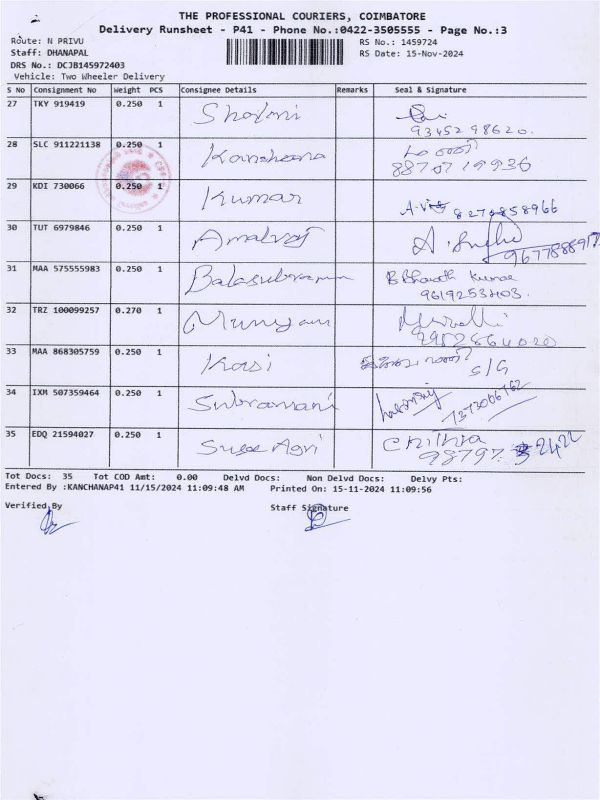 THE PROFESSIONAL COURIERS, COIMBATORE
Delivery Runsheet - P41 - Phone No.:0422-3505555 - Page No.:3
Route: N PRIVU
RS No.: 1459724
Staff: DHANAPAL
RS Date: 15-Nov-2024
DRS No.: DCJB145972403
Vehicle: Two Wheeler Delivery
S No Consignment No Weight PCS Consignee Details Remarks Seal & Signature
27 TKY 919419 0.250 1 Shalini
9345298620.
28 SLC 911221138 0.250 1
8870719936
29 KDI 730066 0.250 1 Kumar
8270858966
30 TUT 6979846 0.250 1 Amalraj
31 MAA 575555983 0.250 1 Balasubraman B Bharath Kumar
9619253403.
32 TRZ 100099257 0.270 1
33 MAA 868305759 0.250 1 Kasi
S/G
34 IXM 507359464 0.250 1 Subramani
35 EDQ 21594027 0.250 1 Chithra
98797
Tot Docs: 35 Tot COD Amt: 0.00 Delvd Docs: Non Delvd Docs: Delvy Pts:
Entered By :KANCHANAP41 11/15/2024 11:09:48 AM Printed On: 15-11-2024 11:09:56
Verified By Staff Signature